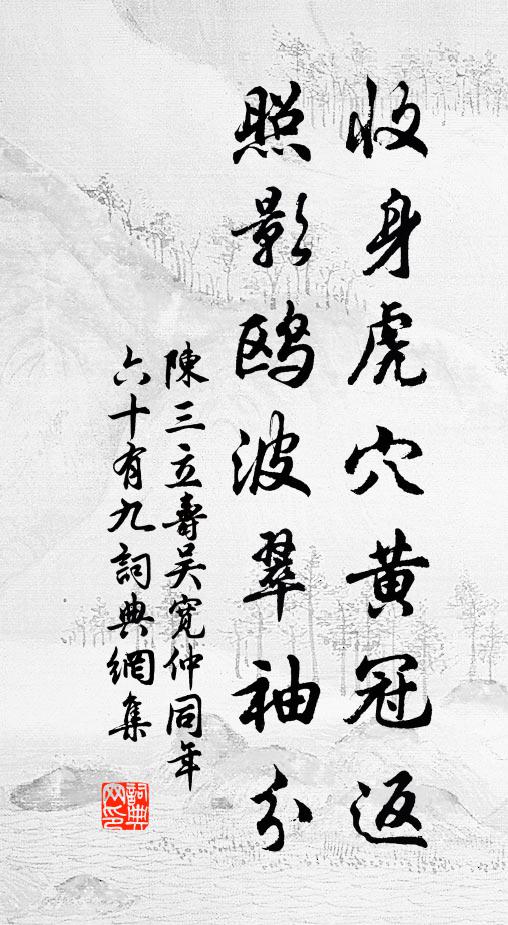 收身虎穴黃冠返
照影鸥波翠袖分
陳三立壽吴寬仲同年
六十有九詞典網集
詞典网印